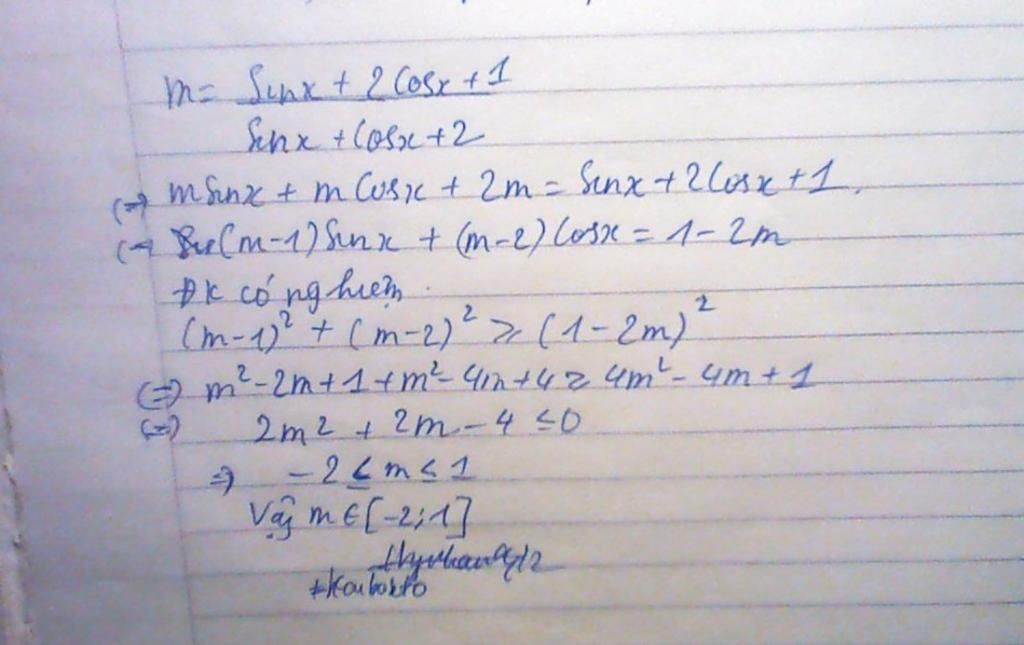 m = Sinx + 2Cosx + 1
Sinx + Cosx + 2
(=) mSinx + mCosx + 2m = Sinx + 2Cosx + 1.
(=) (m-1)Sinx + (m-2)Cosx = 1-2m
ĐK có nghiệm.
(m-1)² + (m-2)² ≥ (1-2m)²
(=) m²-2m+1+m²-4m+4 ≥ 4m²-4m+1
(=) 2m² + 2m - 4 ≤ 0
⇒ -2 ≤ m ≤ 1
Vậy m ∈ [-2;1]